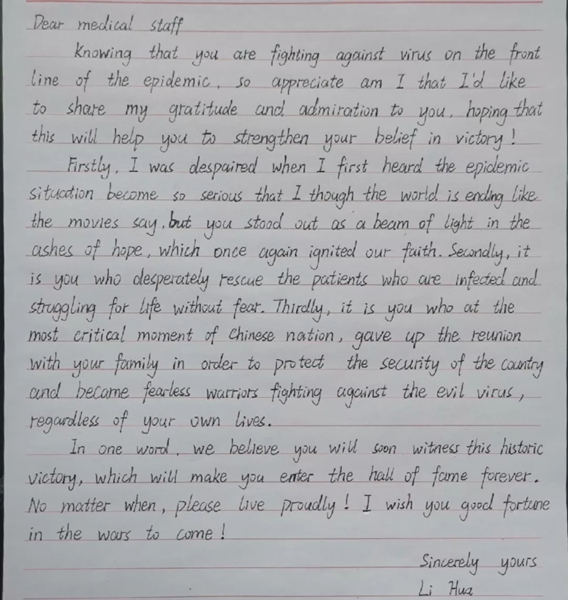 Dear medical staff
Knowing that you are fighting against virus on the front
line of the epidemic, so appreciate am I that I'd like
to share my gratitude and admiration to you, hoping that
this will help you to strengthen your belief in victory!
Firstly, I was despaired when I first heard the epidemic
situation become so serious that I though the world is ending like
the movies say, but you stood out as a beam of light in the
ashes of hope, which once again ignited our faith. Secondly, it
is you who desperately rescue the patients who are infected and
struggling for life without fear. Thirdly, it is you who at the
most critical moment of Chinese nation, gave up the reunion
with your family in order to protect the security of the country
and became fearless warriors fighting against the evil virus,
regardless of your own lives.
In one word, we believe you will soon witness this historic
victory, which will make you enter the hall of fame forever.
No matter when, please live proudly! I wish you good fortune
in the wars to come!
Sincerely yours
Li Hua